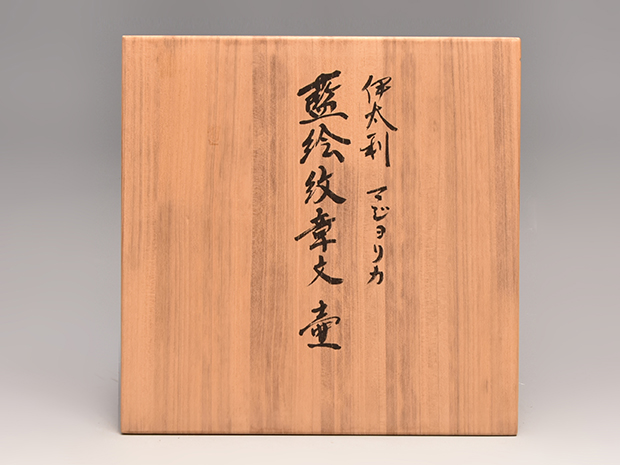 伊太利 マジヨリカ
藍絵紋章文 壷